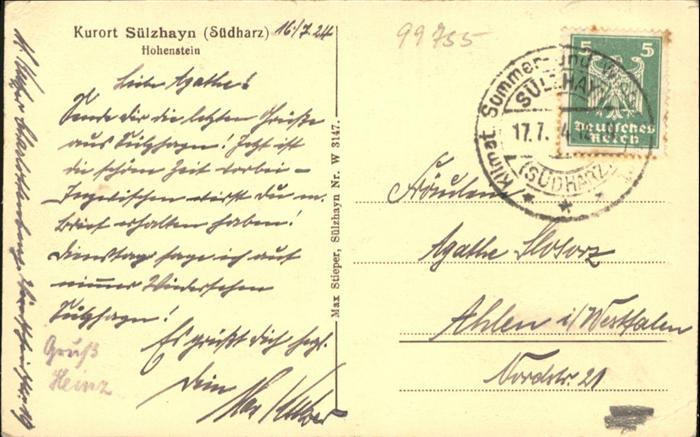 Kurort Sülzhayn (Südharz) 16/7.24
Hohenstein
Liebe Agathe!
Sende Dir die letzten Grüße
aus Sülzhayn! Jetzt ist
die schöne Zeit vorbei –
Inzwischen wirst Du m.
Brief erhalten haben!
Dienstag sage ich auf
nimmer Wiedersehen
Sülzhayn!
Es grüßt Dich
Dein
Max
Gruß
Heinz
Max Stieper, Sülzhayn Nr. W 3147.
99755
5 5
Deutsches
Reich
Klimat. Sommer- und
SÜLZHAYN
17.7.
(SÜDHARZ)
Fräulein
Agathe
Ahlen i/Westfalen
Nordstr. 21